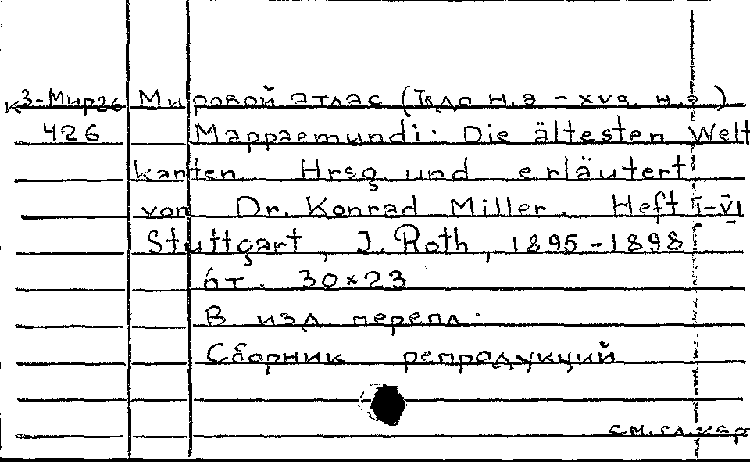 К3-Мир26 Мировой атлас (Iв до н.э - XVв. н.э)
426 Mappaemundi. Die ältesten Welt
karten. Hrsg und erläutert
von Dr. Konrad Miller. Heft I-VI
Stuttgart, J. Roth, 1895-1898
6т. 30×23
В изд перепл.
Сборник репродукций
см. сл. кар